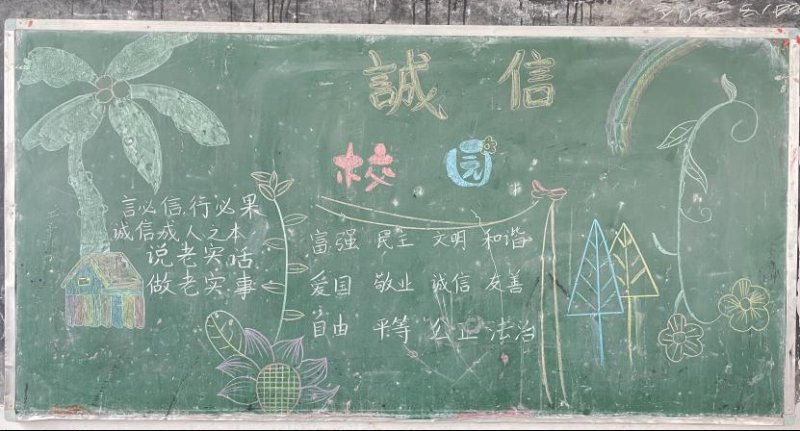 誠信
校园
言必信,行必果
诚信成人之本
说老实话
做老实事
富强 民主 文明 和谐
爱国 敬业 诚信 友善
自由 平等 公正 法治